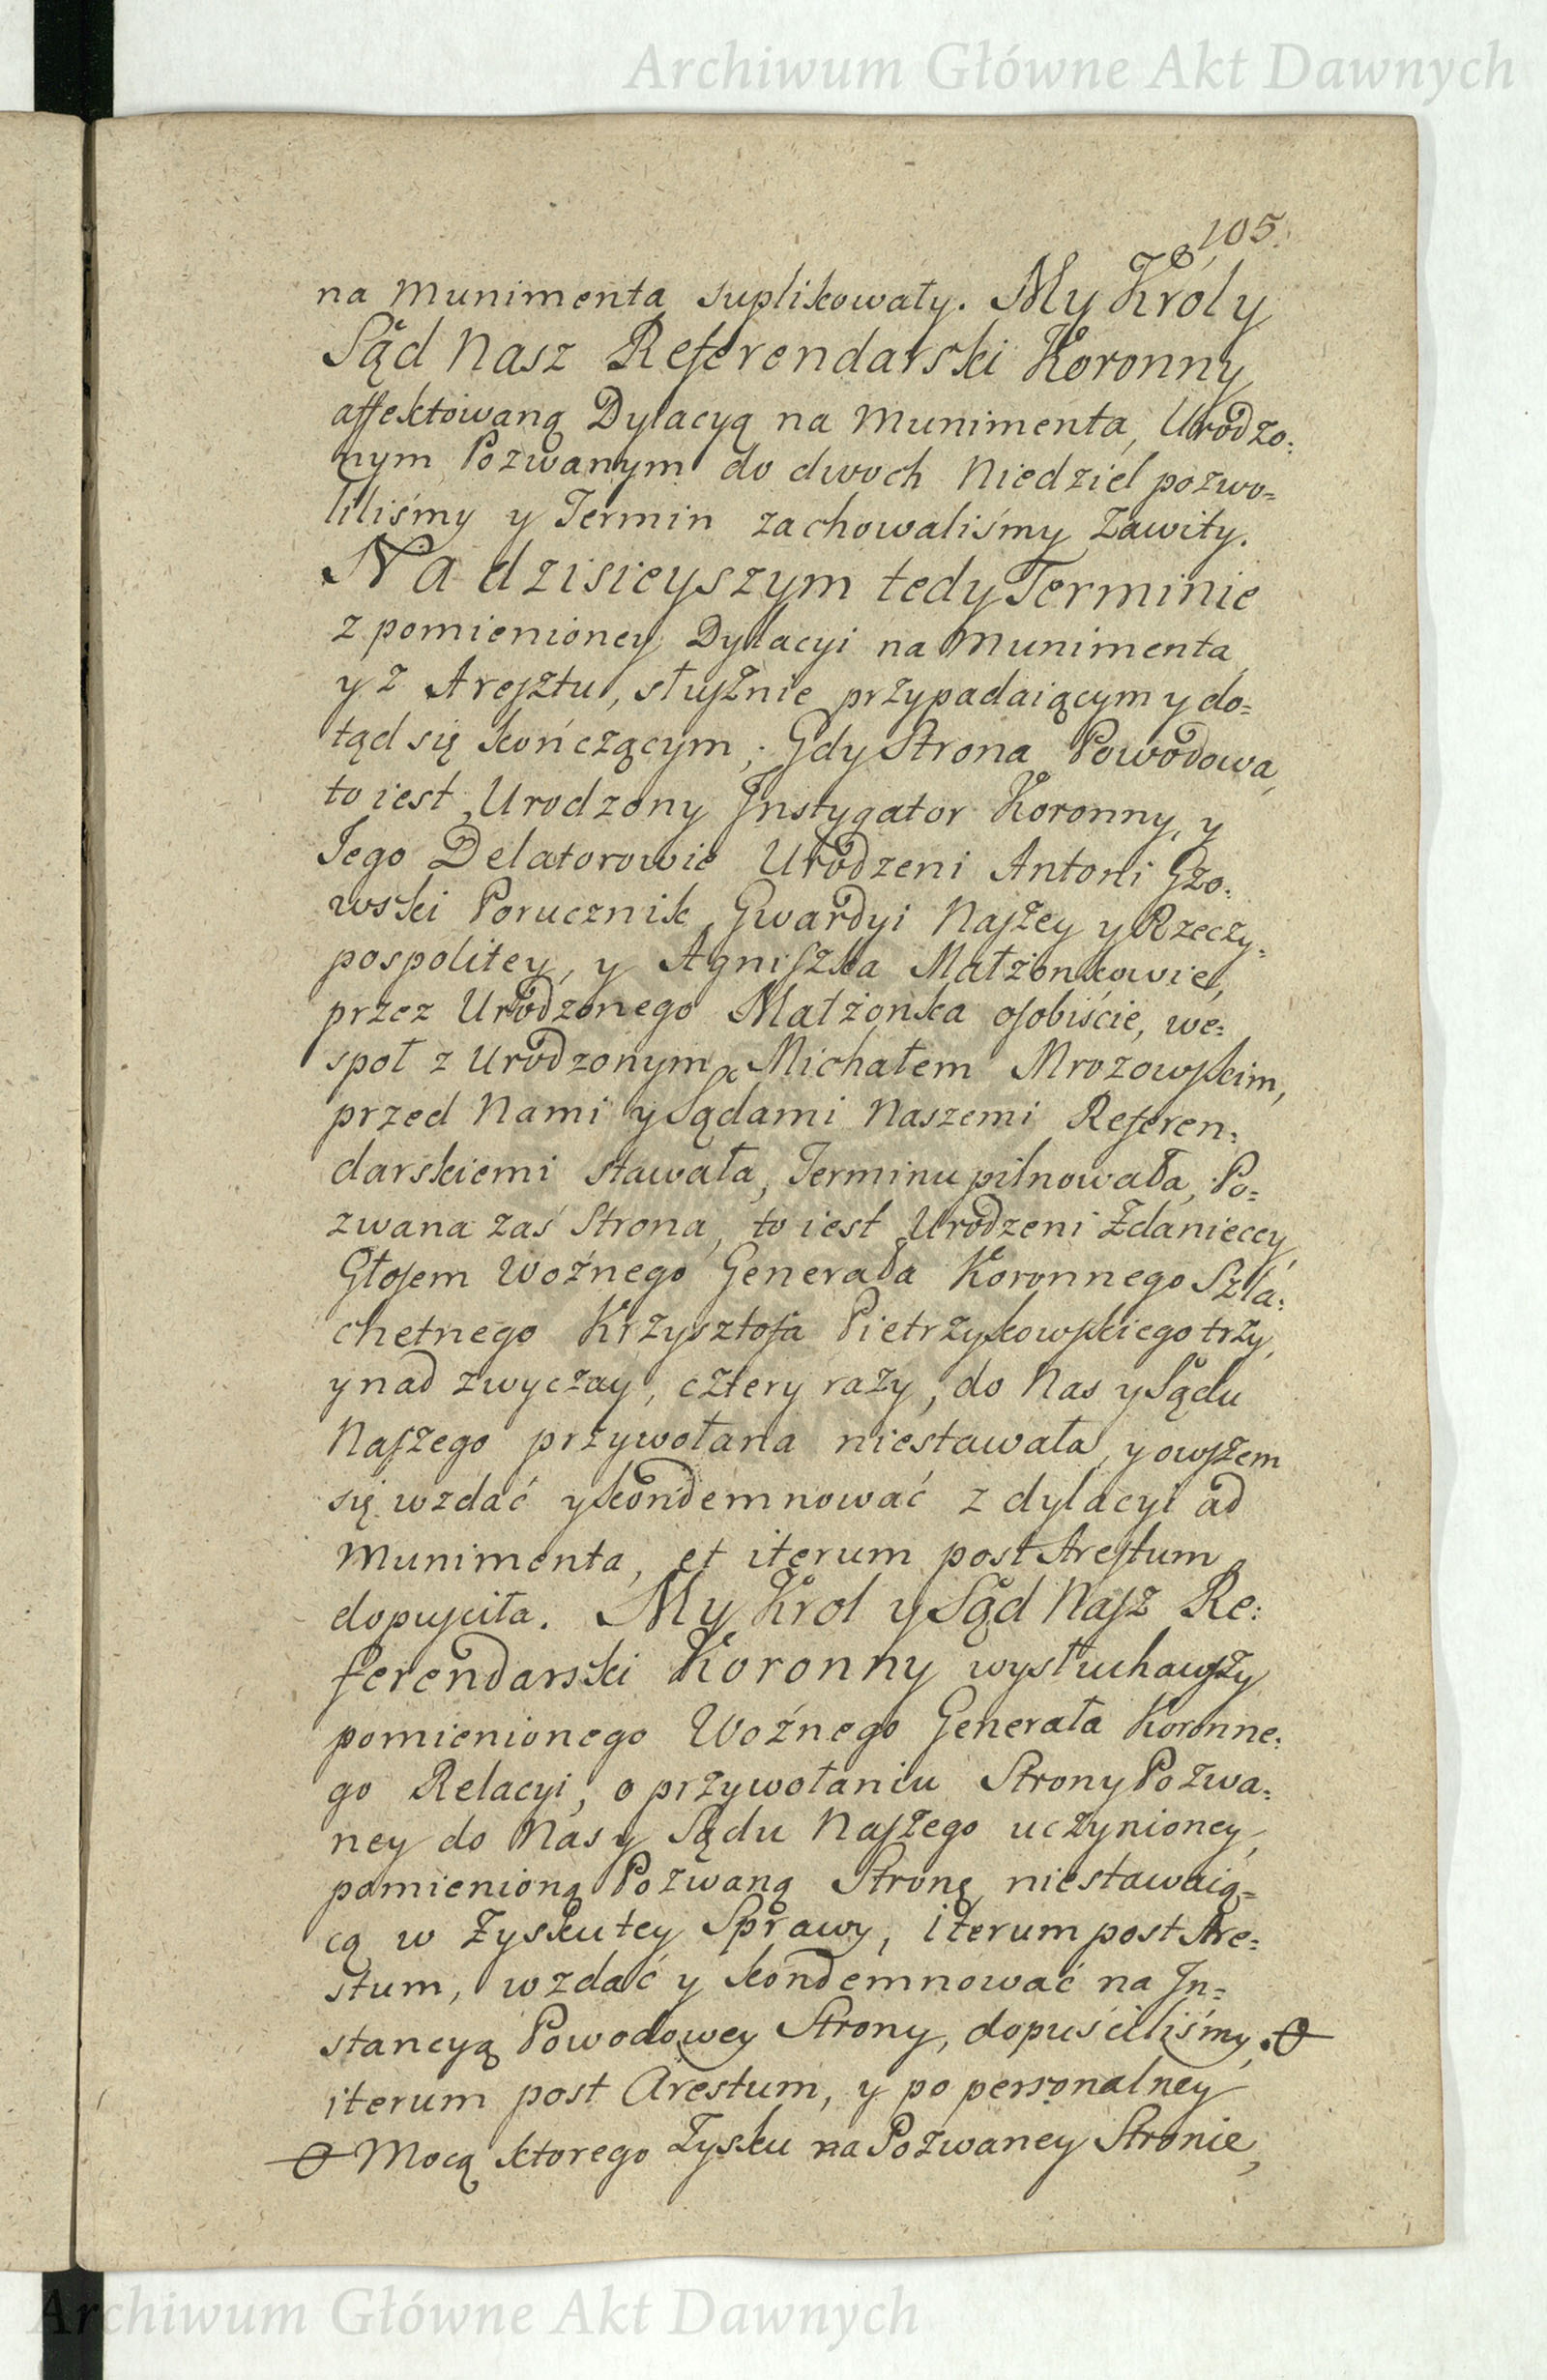 Archiwum Główne Akt Dawnych
105.
na Munimenta suplikowały. My Krol y
Sąd Nasz Referendarski Koronny
affektowaną Dylacyą na Munimenta, Urodzo:
nym Pozwanym do dwoch Niedziel pozwo=
liliśmy y Termin zachowaliśmy Zawity.
Na dzisieyszym tedy Terminie
z pomienioney Dylacyi na Munimenta
y z Aresztu, słusznie przypadaiącym y do=
tąd się kończącym; Gdy Strona Powodowa,
to iest Urodzony Instygator Koronny, y
Jego Delatorowie Urodzeni Antoni Gzo:
wski Porucznik Gwardyi Naszey y Rzeczy:
pospolitey, y Agniszka Małżonkowie,
przez Urodzonego Małżonka osobiście, we:
społ z Urodzonym Michałem Mrozowskim,
przed Nami y Sądami Naszemi Referen:
darskiemi stawała, Terminu pilnowała, Po=
zwana zaś Strona, to iest Urodzeni Zdanieccy,
Głosem Woźnego Generała Koronnego Szla:
chetnego Krzysztofa Pietrzykowskiego trzy,
y nad zwyczay, cztery razy, do Nas y Sądu
Naszego przywołana niestawała, y owszem
się wzdać y kondemnować z dylacyi ad
Munimenta, et iterum post Arestum
dopuściła. My Krol y Sąd Nasz Re:
ferendarski Koronny wysłuchawszy
pomienionego Woźnego Generała Koronne:
go Relacyi, o przywołaniu Strony Pozwa:
ney do Nas y Sądu Naszego uczynioney,
pomienioną Pozwaną Stronę niestawaią=
cą w Zysku tey Sprawy, iterum post Are=
stum, wzdać y kondemnować na In=
stancyą Powodowey Strony, dopuściliśmy.
iterum post Arestum, y po personalney
Mocą ktorego Zysku na Pozwaney Stronie,
Archiwum Główne Akt Dawnych